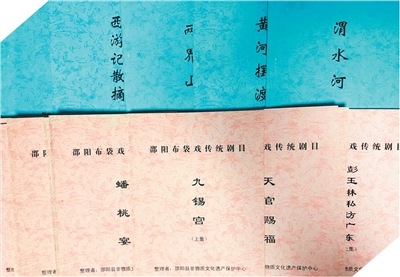 西游记散摘
两界山
黄河摆渡
渭水河
邵阳
整理
邵阳布袋戏
蟠桃宴
整理者：邵阳县非物质文
邵阳布袋戏传统剧目
九锡宫
（上集）
整理者：邵阳县非物质文化遗产保护中心
戏传统剧目
天官赐福
物质文化遗产保护中心
戏传统剧目
彭玉林私访广东
（上集）
物质文化遗产保护中心